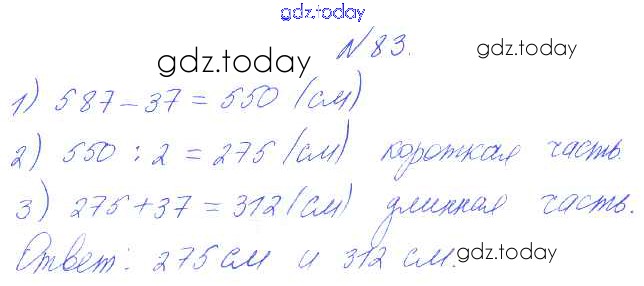 gdz.today
№83.
gdz.today
gdz.today
1) 587 - 37 = 550 (см)
2) 550 : 2 = 275 (см) короткая часть.
gdz.today
gdz.today
3) 275 + 37 = 312 (см) длинная часть.
Ответ: 275 см и 312 см.
gdz.today